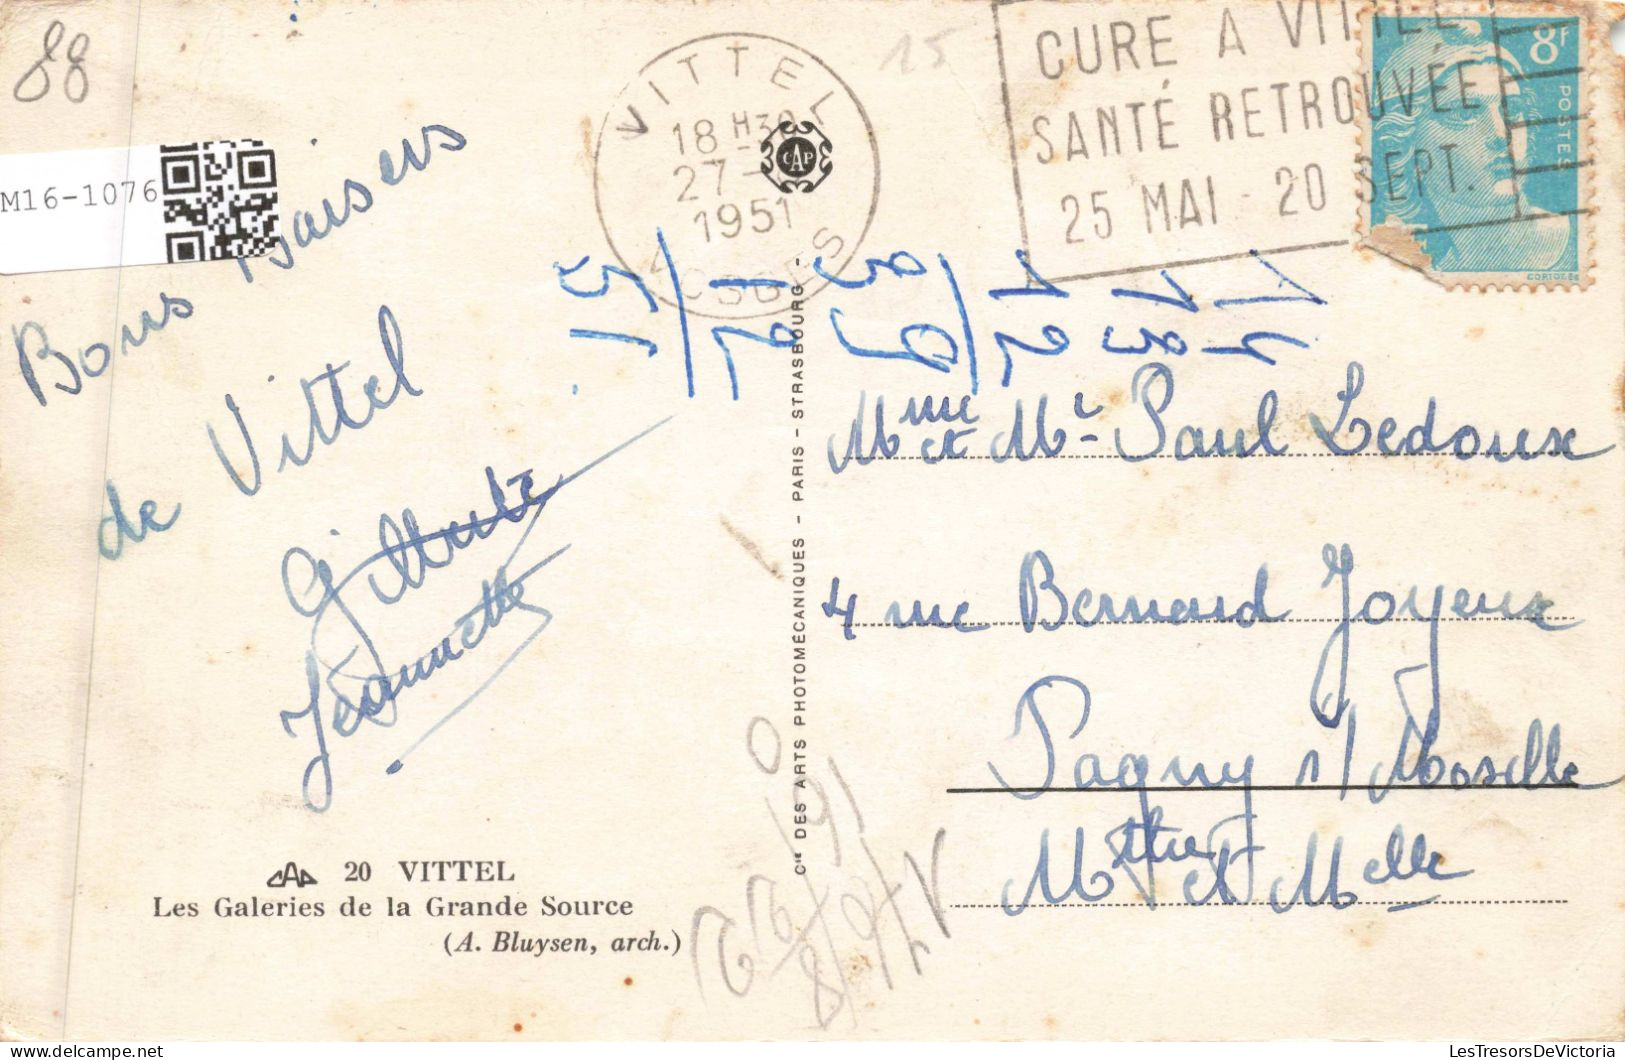 88
M16-1076
Bons Baisers
de Vittel
Gilberte
Jeannette
CAP 20 VITTEL
Les Galeries de la Grande Source
(A. Bluysen, arch.)
VITTEL
18 H30
27-
1951
VOSGES
CAP
Cie DES ARTS PHOTOMÉCANIQUES - PARIS - STRASBOURG -
15
CURE A VITTEL
SANTÉ RETROUVÉE
25 MAI - 20 SEPT.
8F
POSTES
Mme et Mr Paul Ledoux
4 rue Bernard Joyeux
Pagny s/ Moselle
Mthe et Melle
LesTresorsDeVictoria